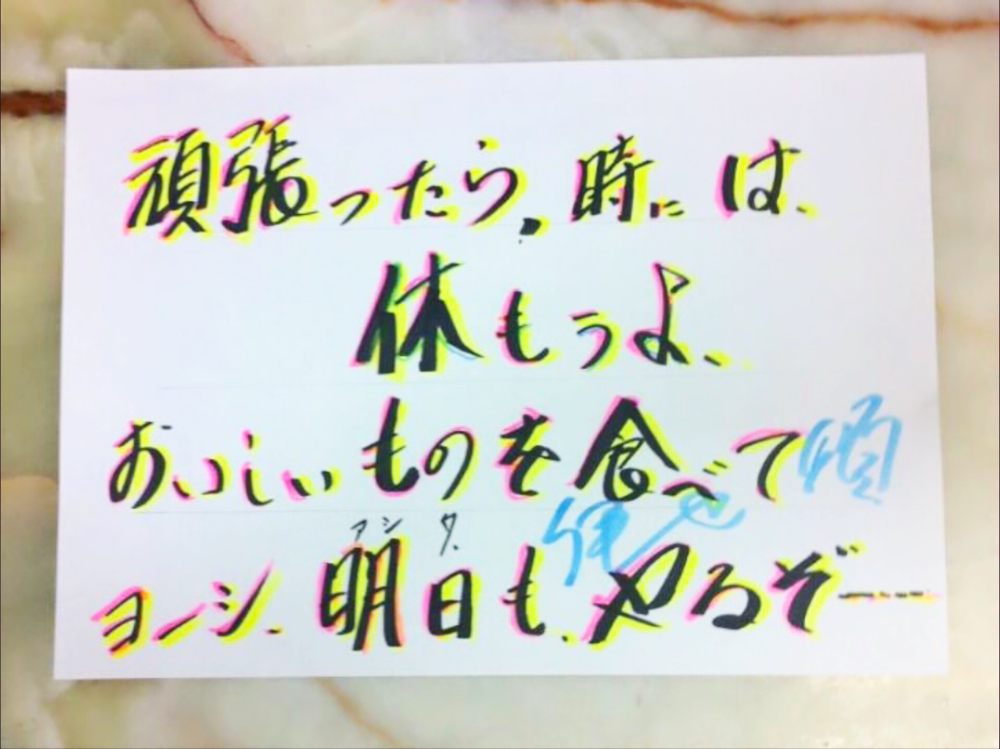 頑張ったら、時には、
休もうよ、
おいしいものを食べて
アシタ
ヨーシ、明日も、やるぞー